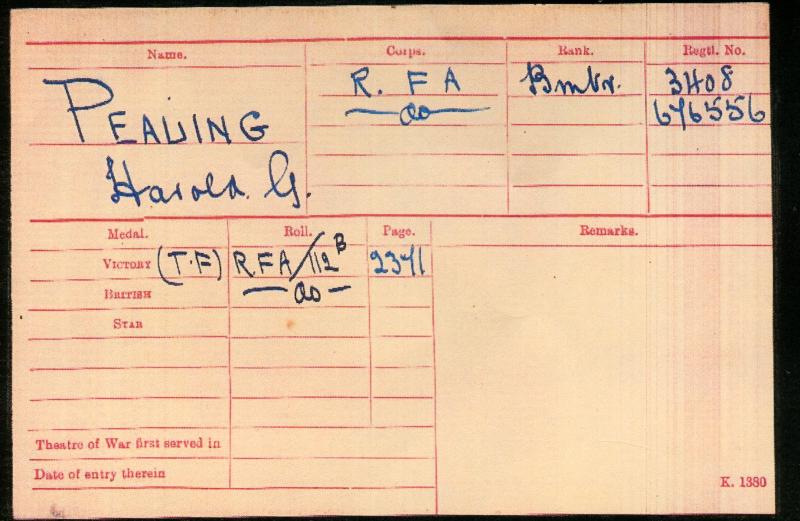 Name. Corps. Rank. Regtl. No.
PEALING R. F A Bmbr. 3408
Harold. G. do 676556
Medal. Roll. Page. Remarks.
VICTORY (T.F) RFA/112B 2371
BRITISH do
STAR
Theatre of War first served in
Date of entry therein
K. 1380